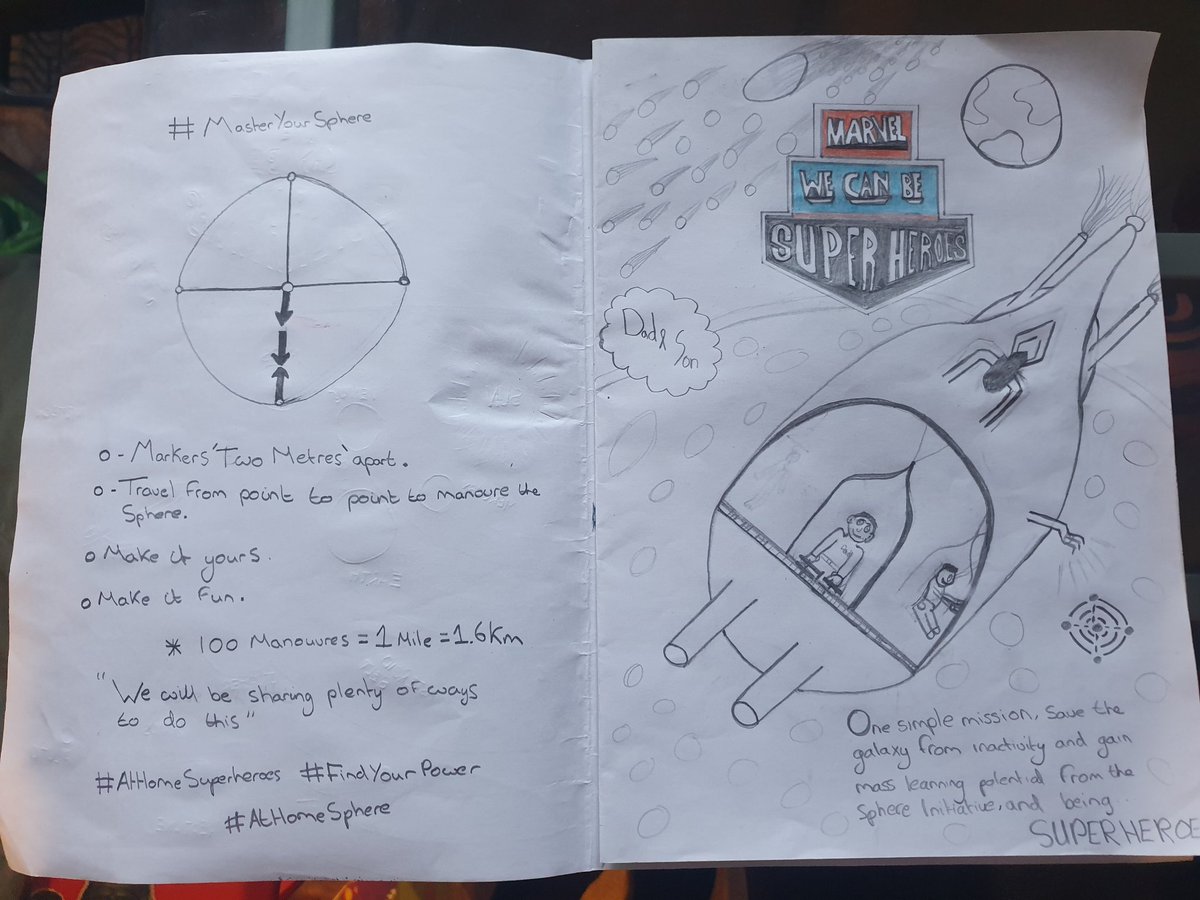 # MasterYourSphere
o - Markers 'Two Metres' apart.
o - Travel from point to point to manoure the
Sphere.
o Make it yours.
o Make it fun.
* 100 Manouvres = 1 Mile = 1.6Km
"We will be sharing plenty of ways
to do this"
#AtHomeSuperheroes #FindYourPower
#AtHomeSphere
MARVEL
WE CAN BE
SUPER HEROES
Dad &
Son
One simple mission, Save the
galaxy from inactivity and gain
mass learning potential from the
Sphere Initiative, and being
SUPERHEROE